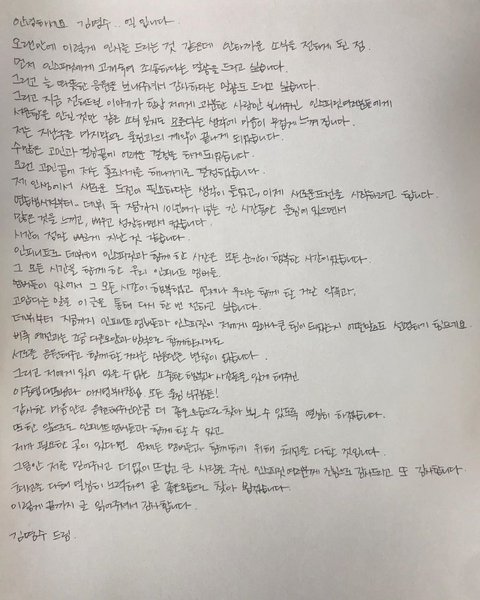 안녕하세요 김명수.. 엘 입니다.
오랜만에 이렇게 인사를 드리는 것 같은데 안타까운 소식을 전하게 된 점.
먼저 인스피릿에게 고개숙여 죄송하다는 말씀을 드리고 싶습니다.
그리고 늘 따뜻한 응원을 보내주셔서 감사하다는 말씀도 드리고 싶습니다.
그리고 지금 전해드릴 이야기가 항상 저에게 과분한 사랑만 보내주신 인스피릿여러분들에게
서운함을 안길 것만 같은 소식 일지도 모른다는 생각에 마음이 무겁게 느껴집니다.
저는 지난주를 마지막으로 울림과의 계약이 끝나게 되었습니다.
수많은 고민과 결정끝에 어려운 결정을 하게되었습니다.
오랜 고민끝에 저는 홀로서기를 해나가기로 결정하였습니다.
제 인생에서 새로운 도전이 필요하다는 생각이 들었고, 이제 새로운도전을 시작하려고 합니다.
연습생시절부터.. 데뷔 후 지금까지 10년여가 넘는 긴 시간동안 울림에 있으면서
많은 것을 느끼고, 배우고 성장하면서 컸습니다.
시간이 정말 빠르게 지난 것 같습니다.
인피니트로 데뷔해 인스피릿과 함께 한 시간은 모든 순간이 행복한 시간이었습니다.
그 모든 시간을 함께 해 준 우리 인피니트 멤버들.
멤버들이 있어서 그 모든 시간이 행복했었고 언제나 우리는 함께 할 거란 약속과,
고맙다는 말을 이 글을 통해 다시 한 번 전하고 싶습니다.
데뷔부터 지금까지 인피니트 멤버들과 인스피릿이 저에게 얼마나 큰 힘이 되었는지 어떤말로도 설명하기 힘드네요.
비록 예전과는 조금 다른모양과 방식으로 함께하지만
서로를 응원해주고 함께 할 거라는 믿음만은 변함이 없습니다.
그리고 저에게 있어 잊을 수 없는 소중한 행복과 시작들을 있게 해주신
이중엽대표님과 이사님 부사장님 모든 울림 식구분들!
감사한 마음안고 응원해주신만큼 더 좋은모습으로 찾아 뵐 수 있도록 열심히 하겠습니다.
또한 앞으로도 인피니트 멤버들과 함께 할 수 있고
제가 필요한 곳이 있다면 언제든 멤버들과 함께하기 위해 최선을 다할 것입니다.
그동안 저를 믿어주시고 더 없이 뜨겁고 큰 사랑을 주신 인스피릿 여러분께 진심으로 감사드리고 또 감사합니다.
최선을 다해 열심히 노력하여 곧 좋은모습으로 찾아 뵙겠습니다.
이렇게 끝까지 글 읽어주셔서 감사합니다.
김명수 드림.